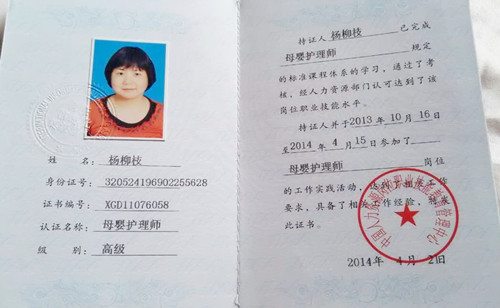 姓 名： 杨柳枝
身份证号：320524196902255628
证书编号：XGD11076058
认证名称：母婴护理师
级 别：高级
持证人 杨柳枝 已完成
母婴护理师 规定
的标准课程体系的学习，通过了考
核，经人力资源部门认可达到了该
岗位职业技能水平。
持证人并于2013年10月16日
至2014年4月15日参加了
母婴护理师 岗位
的工作实践活动，达到了相关工作
要求，具备了相关工作经验，特发
此证书。
2014年 4月 2日